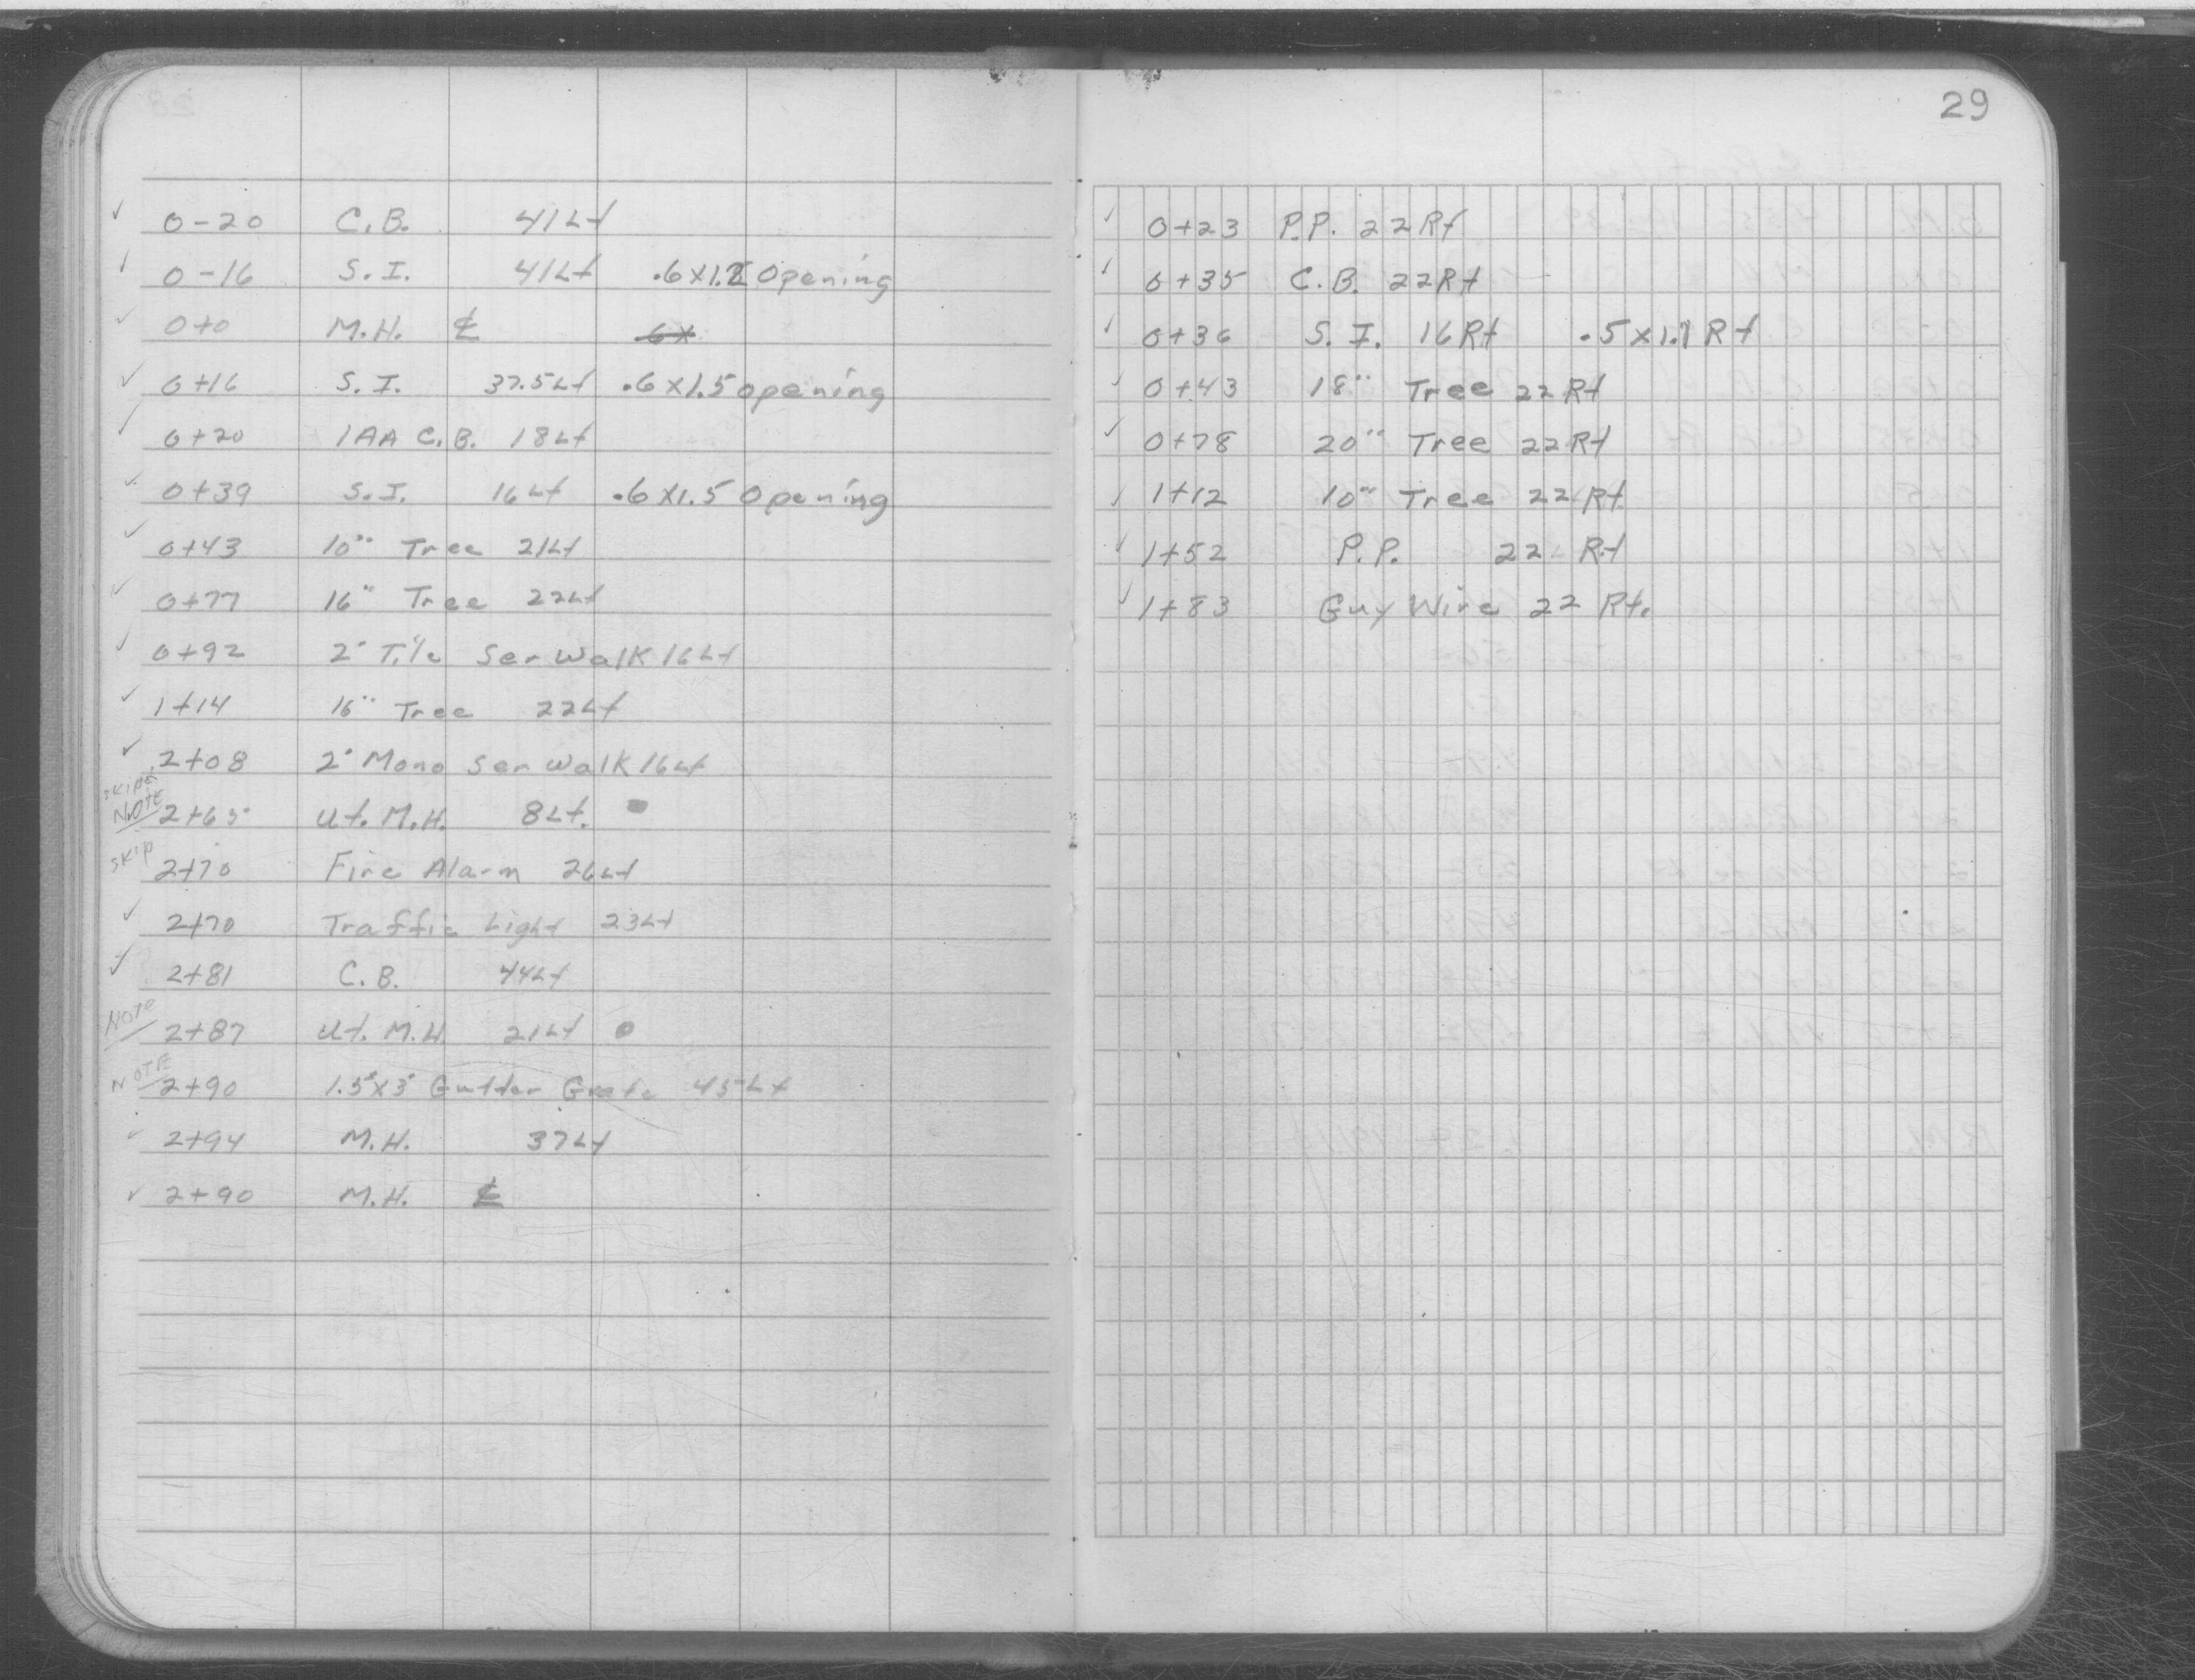 29
✓ 0-20 C.B. 41Lt
✓ 0-16 S.I. 41Lt .6x1.2 Opening
✓ 0+0 M.H. ℄ ~~.6x~~
✓ 0+16 S.I. 37.5Lt .6x1.5 opening
✓ 0+20 1AA C.B. 18Lt
✓ 0+39 S.I. 16Lt .6x1.5 Opening
✓ 0+43 10" Tree 21Lt
✓ 0+77 16" Tree 22Lt
✓ 0+92 2' Tile Ser Walk 16Lt
✓ 1+14 16" Tree 22Lt
✓ 2+08 2' Mono Ser Walk 16Lt
NOTE 2+65 Ut. M.H. 8Lt.
skip 2+70 Fire Alarm 26Lt
✓ 2+70 Traffic Light 23Lt
✓ 2+81 C.B. 44Lt
NOTE 2+87 Ut. M.H. 21Lt
NOTE 2+90 1.5'x3' Gutter Grate 45Lt
✓ 2+94 M.H. 37Lt
✓ 2+90 M.H. ℄
✓ 0+23 P.P. 22Rt
✓ 0+35 C.B. 22Rt
✓ 0+36 S.I. 16Rt .5x1.1 Rt
✓ 0+43 18" Tree 22Rt
✓ 0+78 20" Tree 22Rt
✓ 1+12 10" Tree 22Rt
✓ 1+52 P.P. 22 Rt
✓ 1+83 Guy Wire 22 Rt.